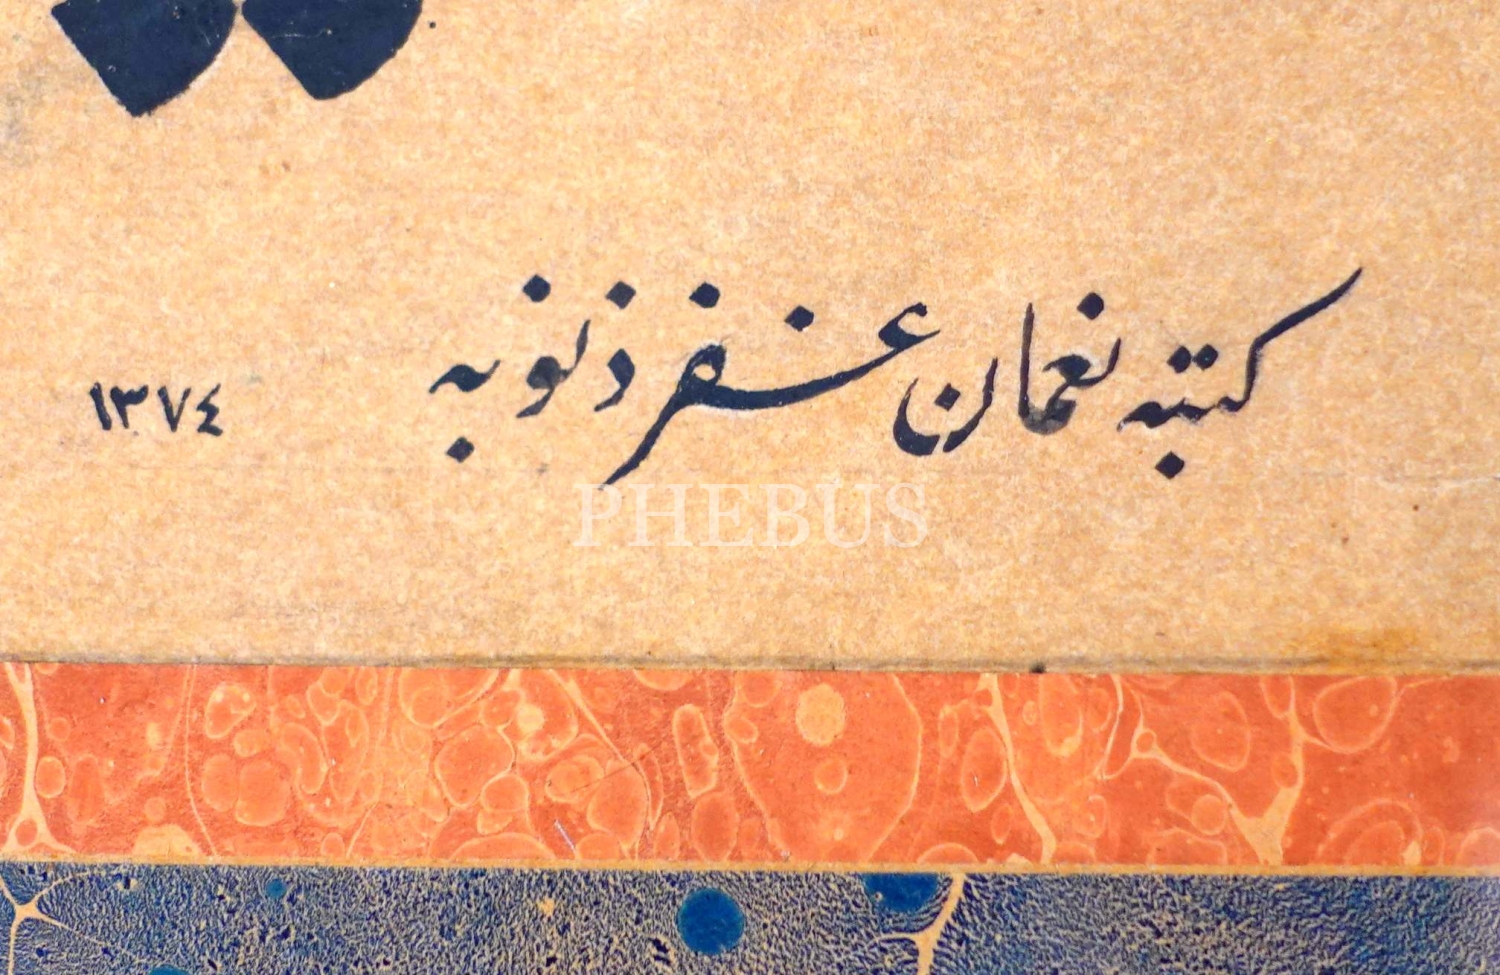 كتبه نعمان غفر ذنوبه
١٣٧٤
PHEBUS